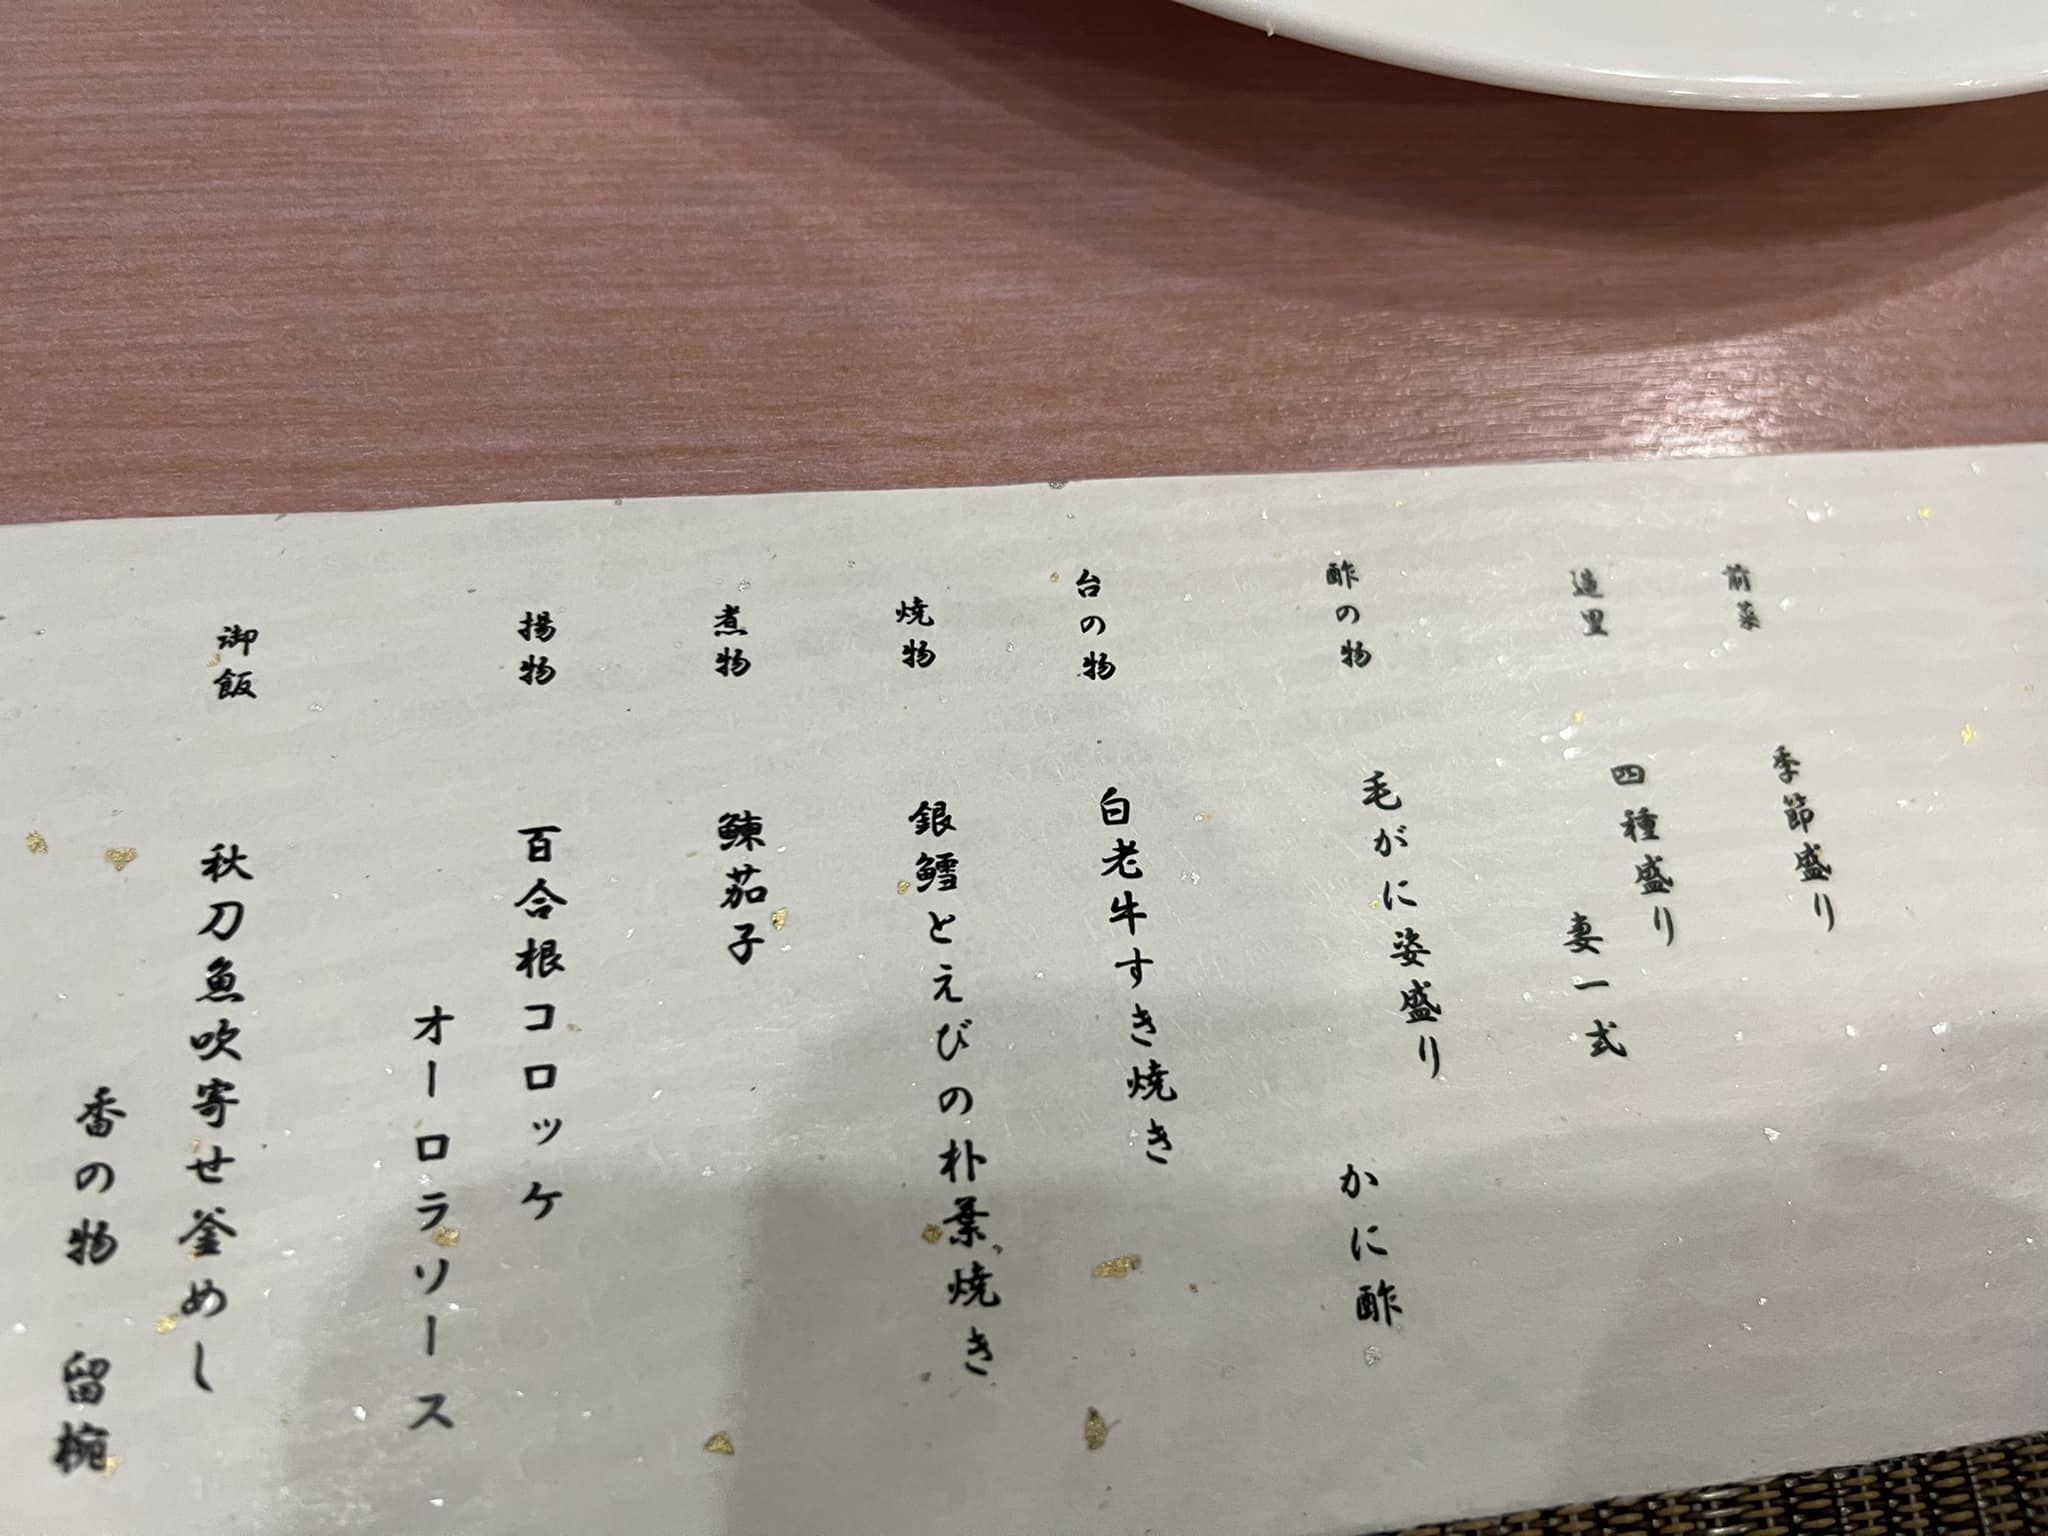 前菜 季節盛り
造里 四種盛り
妻一式
酢の物 毛がに姿盛り かに酢
台の物 白老牛すき焼き
焼物 銀鱈とえびの朴葉焼き
煮物 鰊茄子
揚物 百合根コロッケ
オーロラソース
御飯 秋刀魚吹寄せ釜めし
香の物 留椀